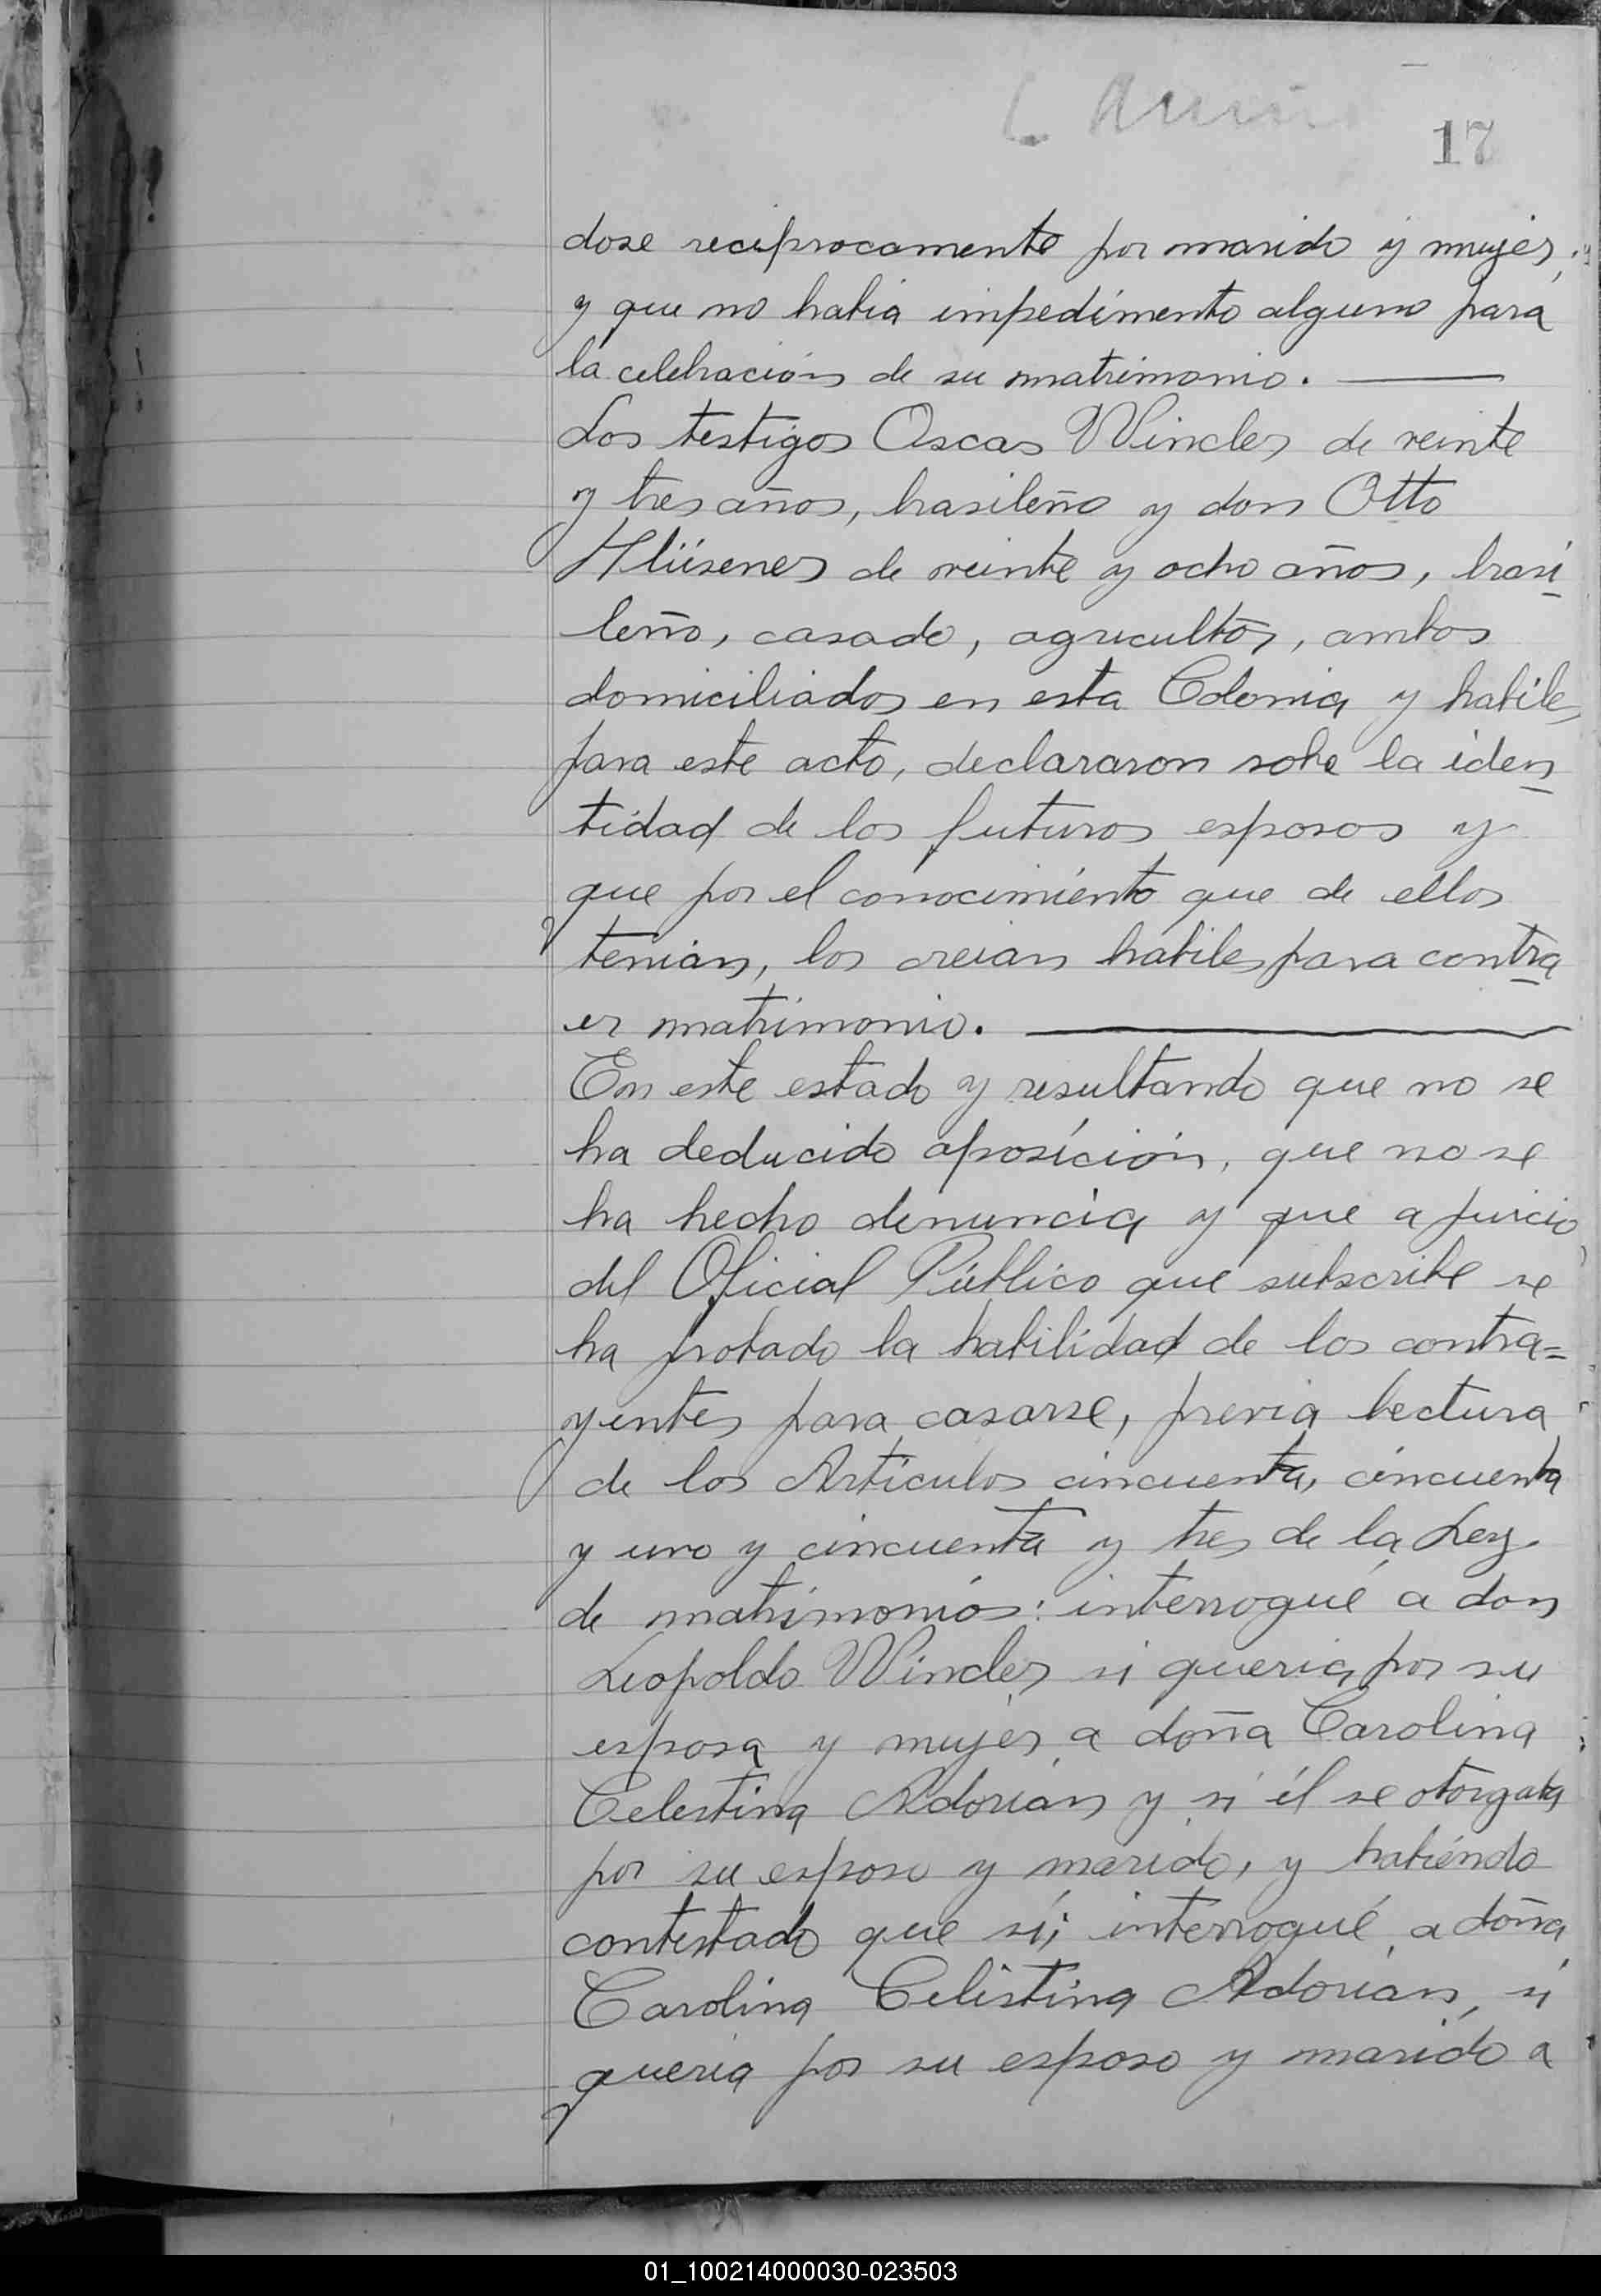 17
dose reciprocamente por marido y mujer,
y que no habia impedimento alguno para
la celebración de su matrimonio. ———
Los testigos Oscar Wincler de veinte
y tres años, brasileño y don Otto
Hlüsener de veinte y ocho años, brasi
leño, casado, agricultor, ambos
domiciliados en esta Colonia y habiles
para este acto, declararon sobre la iden
tidad de los futuros esposos y
que por el conocimiento que de ellos
tenian, los creian habiles para contra
er matrimonio. ———
En este estado y resultando que no se
ha deducido oposición, que no se
ha hecho denuncia y que a juicio
del Oficial Público que subscribe se
ha probado la habilidad de los contra=
yentes para casarse, previa lectura
de los Artículos cincuenta, cincuenta
y uno y cincuenta y tres de la Ley
de matrimonios: interrogué a don
Leopoldo Wincler si queria por su
esposa y mujer a doña Carolina
Celestina Adorian y si él se otorgaba
por su esposo y marido, y habiendo
contestado que sí; interrogué a doña
Carolina Celistina Adorian, si
queria por su esposo y marido a
01_100214000030-023503